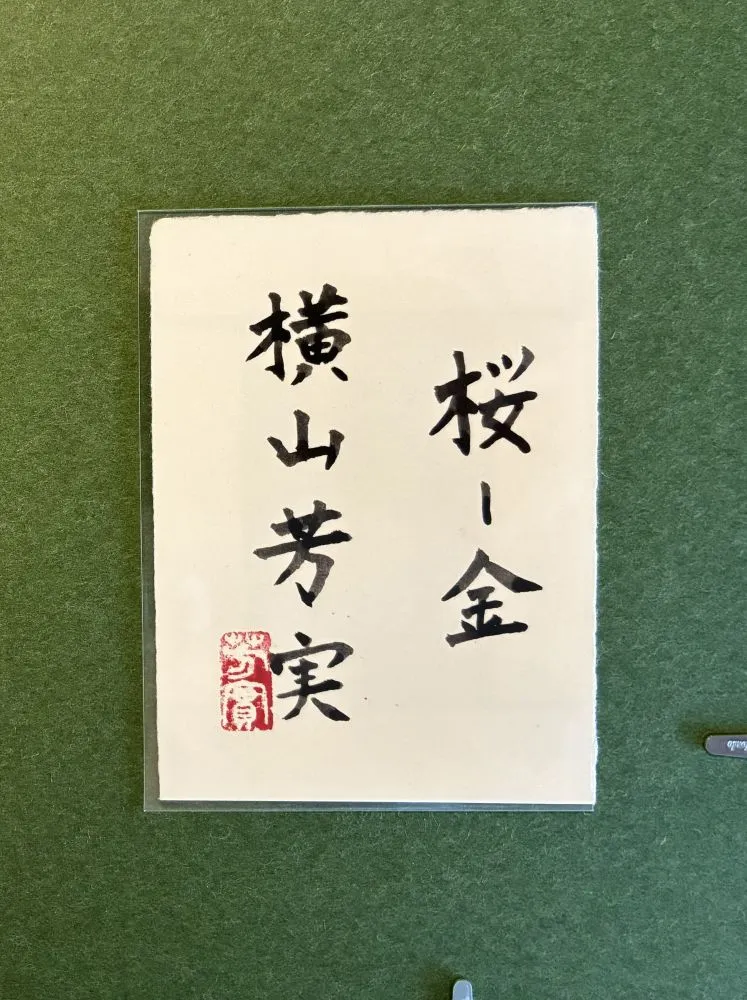 桜ー金
横山芳実
芳實